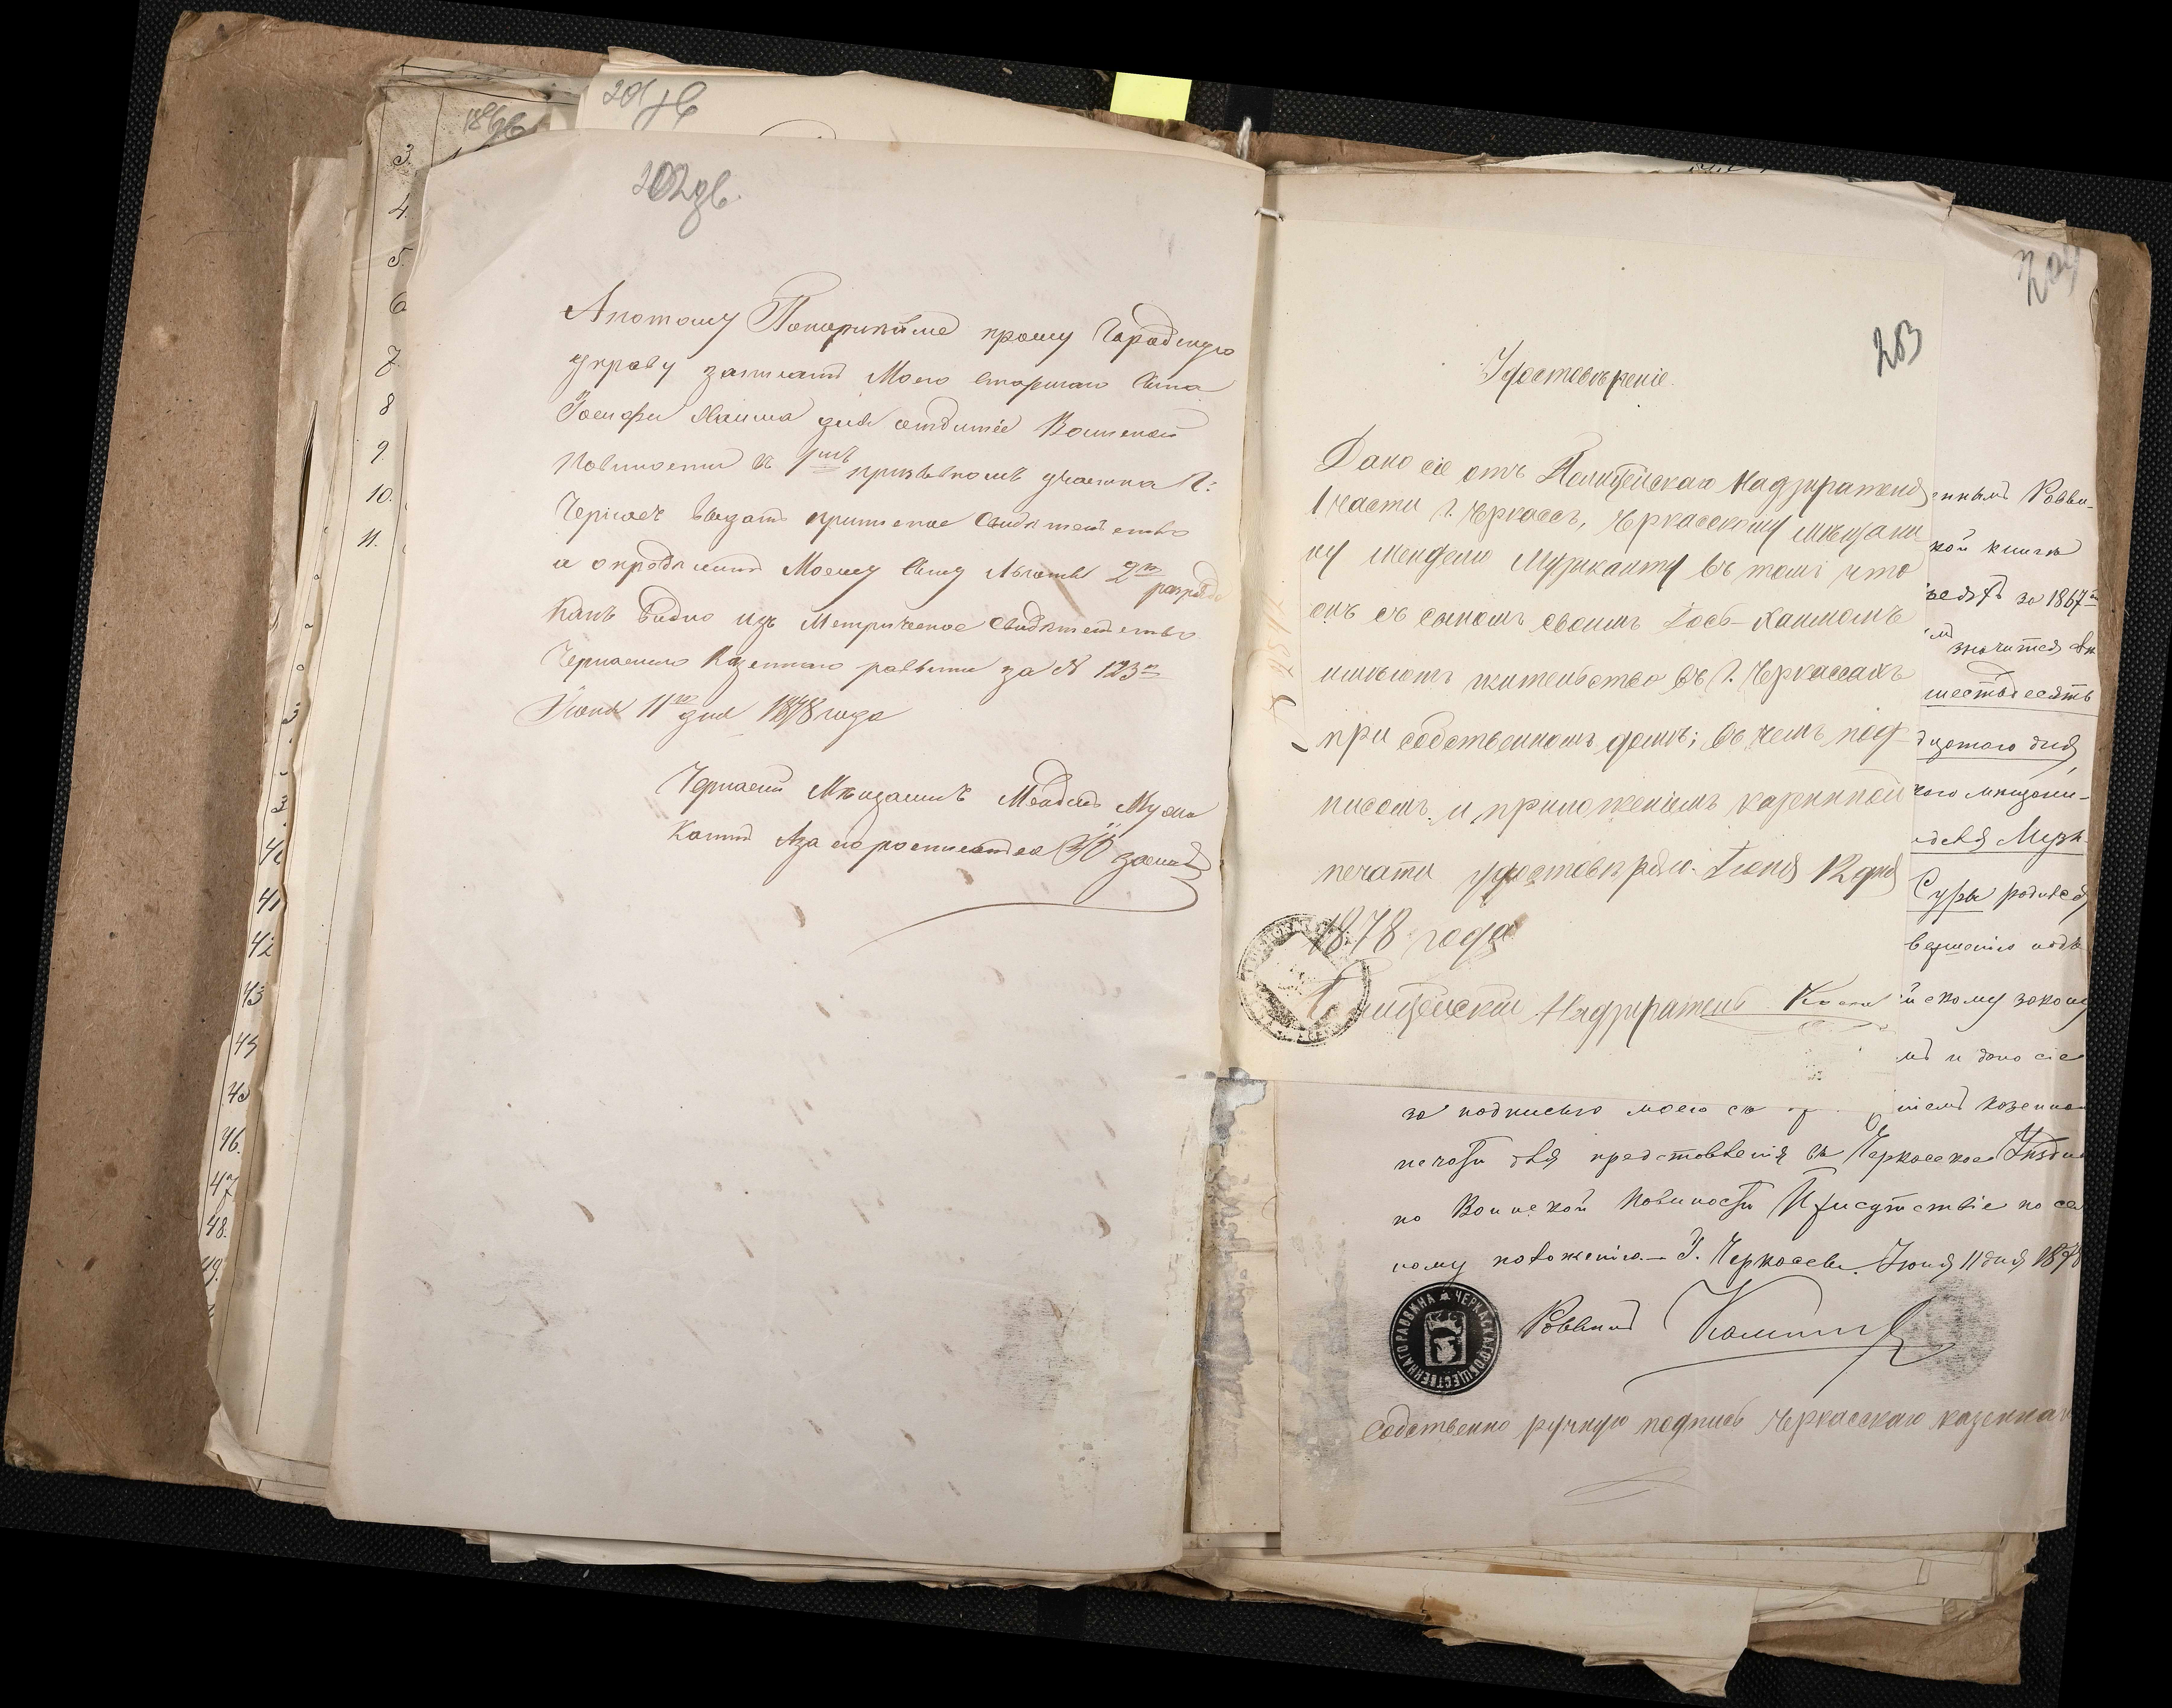 201 зв
202 зв.
Апотому Покорнийше прошу Городскую
Управу записать Моего старшаго Сына
Іосифа Хаима для отбитія Воинской
Повинности въ 1мъ призывномъ участка Г:
Черкасъ выдать приписное Свидетельство
и опредѣлить Моему Сыну Льготы 2го
разряда
какъ видно изъ Метрическое Свидѣтельство
Черкаского Казенного раввина за № 123м
Іюня 11го дня 1878 года
Черкаскій Мѣщанинъ Мендель Музи
кантъ
203
204
Удостовѣреніе.
Дано сіе отъ Полицейскаго Надзирателя
1 части г. Черкассъ, Черкасскому мѣщани
ну Менделю Музыканту въ томъ что
онъ съ сыномъ своимъ Іось-Хаимомъ
имѣютъ жительство въ г. Черкассахъ
при собственномъ домѣ; въ чемъ под-
писомъ и приложеніемъ казенной
печати удостовѣряю. Іюня 12 дня
1878 года
Полицейскій Надзиратель
еннымъ Равви-
кой книги
за 1867
значится
шестьдесятъ
дцатого дня
кого мещани-
Сулы родился
скому закону
мъ и дано сіе
за подписью моею съ казенной
печати для представленія въ Черкаское Уѣздное
по Воинской повиности Присутствіе по се
ному положенію. – Г. Черкассы. Іюня 11 дня 1878
Раввинъ
ЧЕРКАСКАГО ОБЩЕСТВЕННАГО РАВВИНА
Собственно ручную подпись Черкасскаго казеннаго
3.
4.
5.
6
7.
8
9.
10.
11.
41
42
43
46.
47
48.
49.